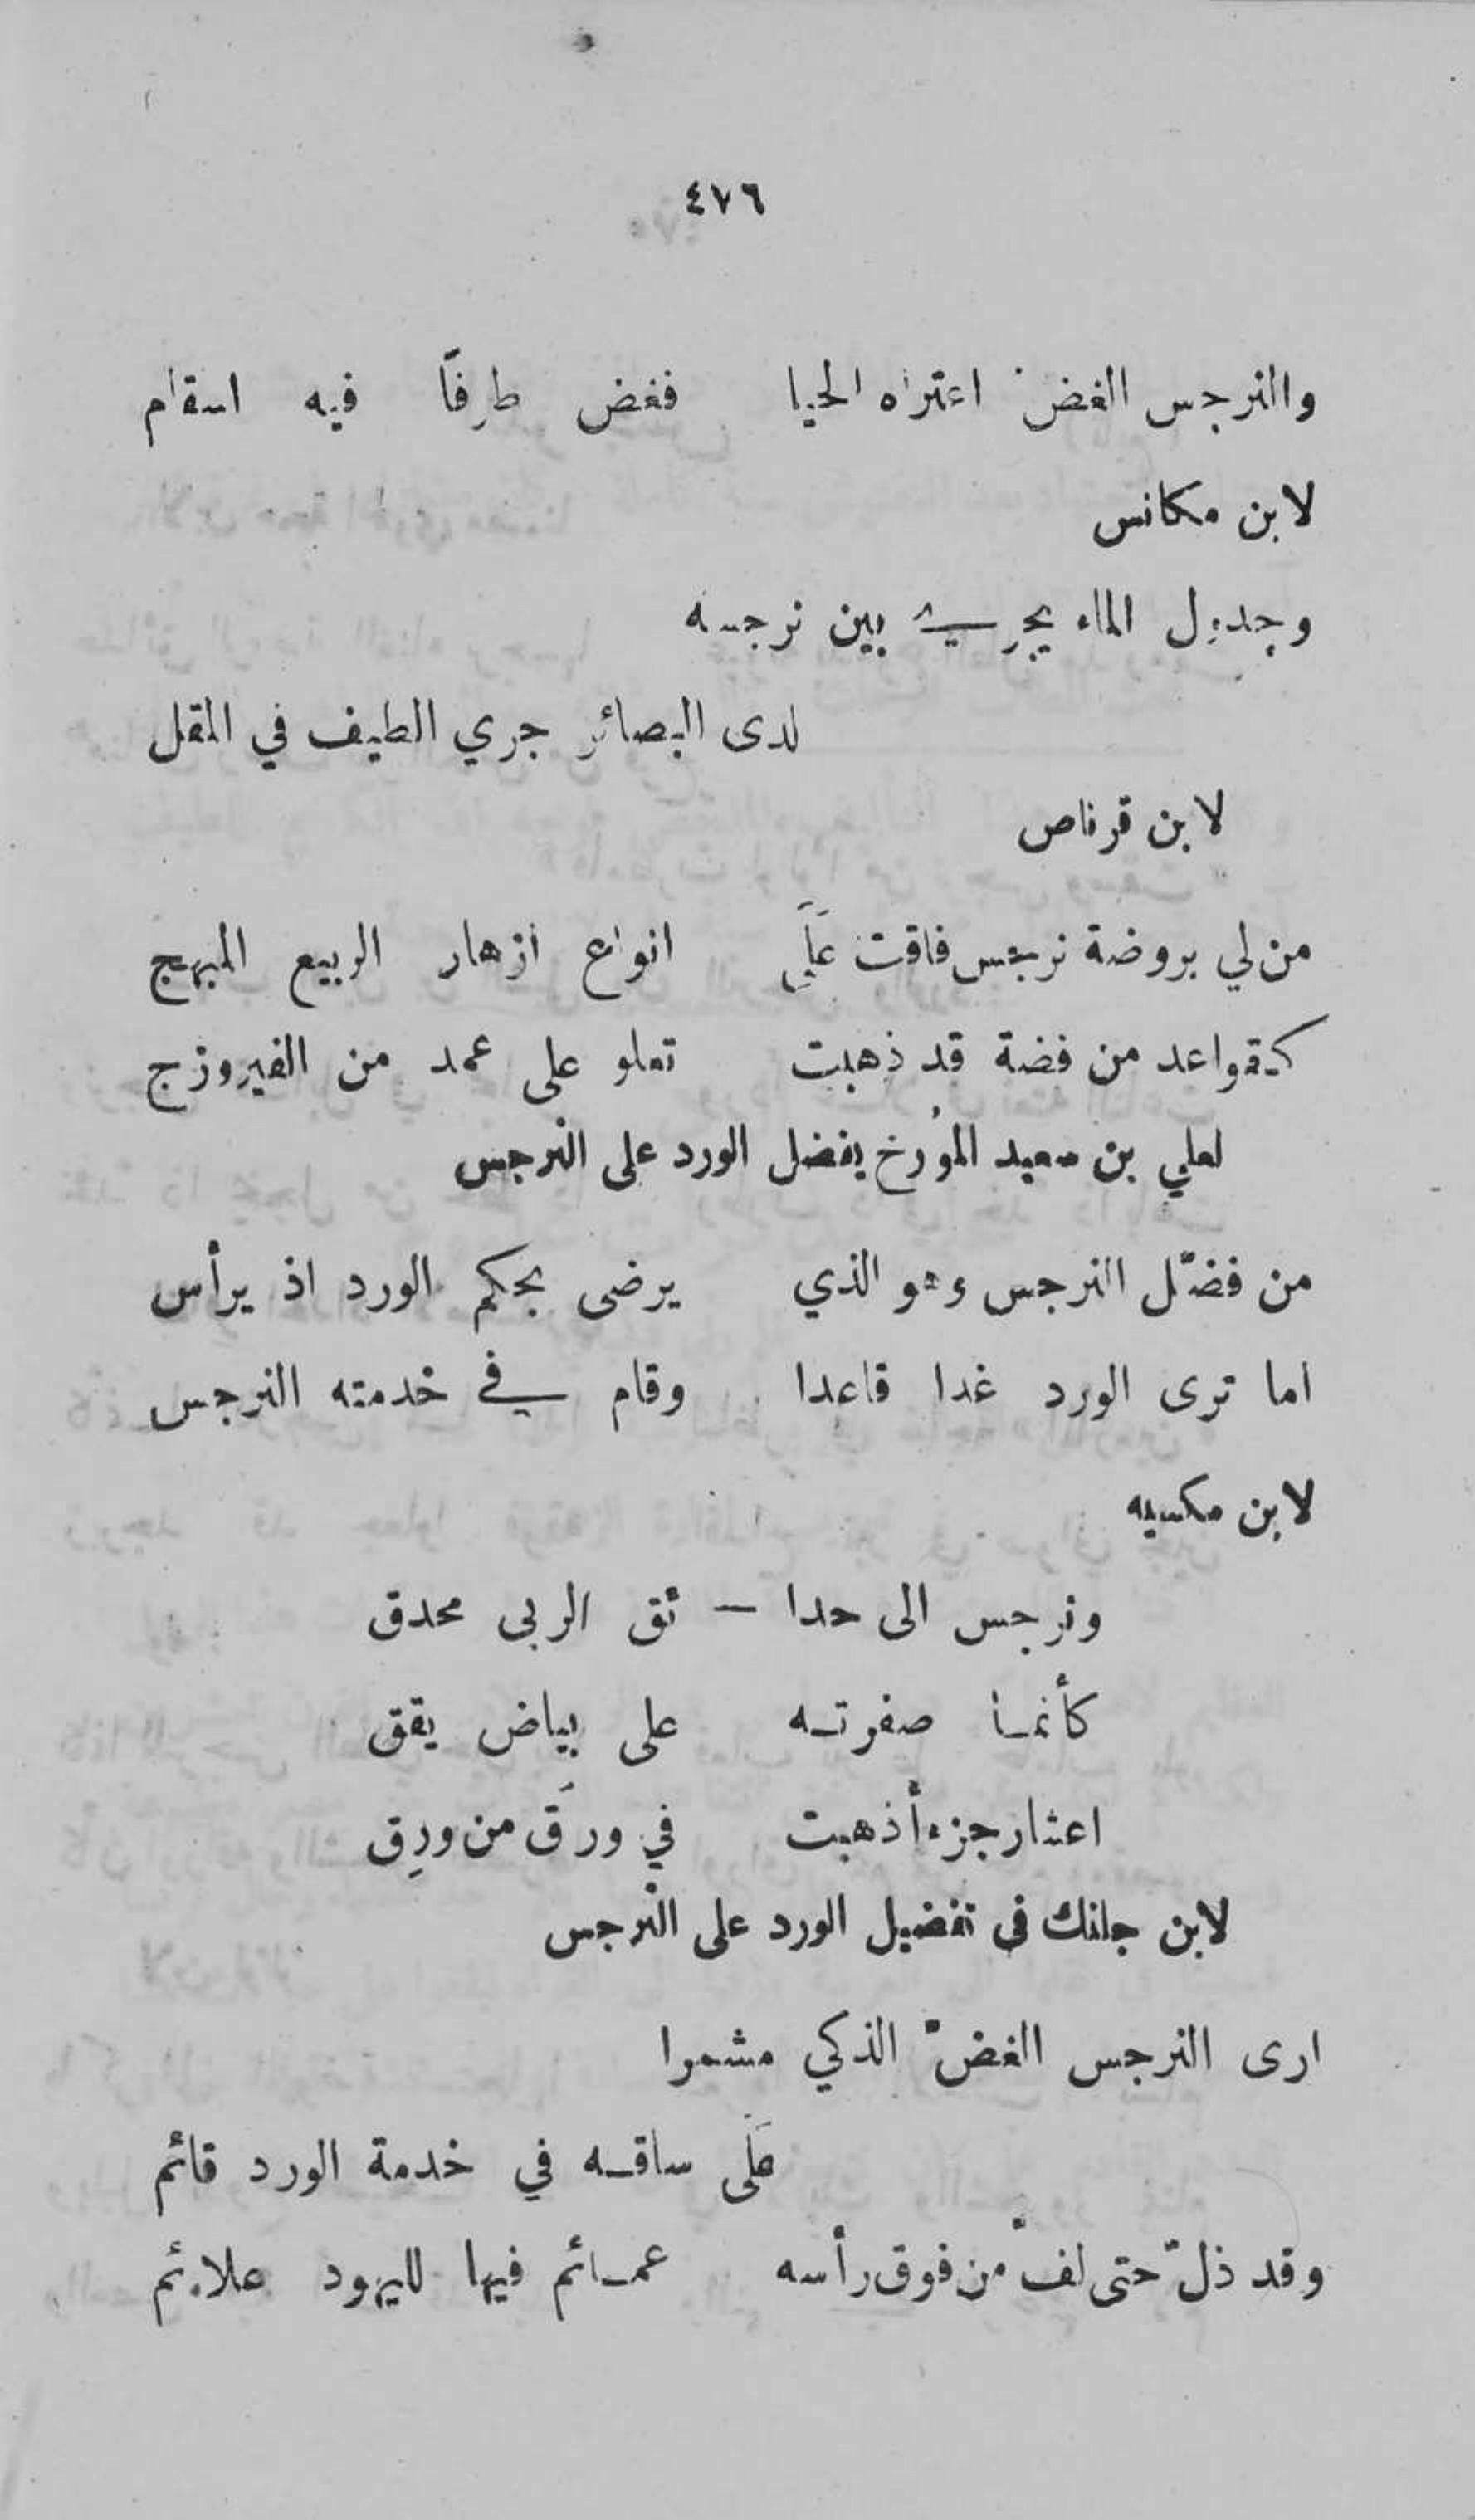 ٤٧٦
والنرجس الغضّ اعتراه الحيا فغض طرفًا فيه اسقام
لابن مكانس
وجدول الماء يجري بين نرجسه
لدى البصائر جري الطيف في المقل
لابن قرناص
من لي بروضة نرجس فاقت عَلَى انواع ازهار الربيع المبهج
كقواعد من فضة قد ذهبت تعلو على عمد من الفيروزج
لعلي بن سعيد المؤرخ يفضل الورد على النرجس
من فضّل النرجس وهو الذي يرضى بحكم الورد اذ يرأس
اما ترى الورد غدا قاعدا وقام في خدمته النرجس
لابن مكسيه
ونرجس الى حدا – ئق الربى محدق
كأنما صفرته على بياض يقق
اعشار جزء أذهبت في ورَق من ورِق
لابن جلنك في تفضيل الورد على النرجس
ارى النرجس الغضّ الذكي مشمرا
عَلَى ساقه في خدمة الورد قائم
وقد ذلّ حتى لفّ من فوق رأسه عمائم فيها لليهود علائم